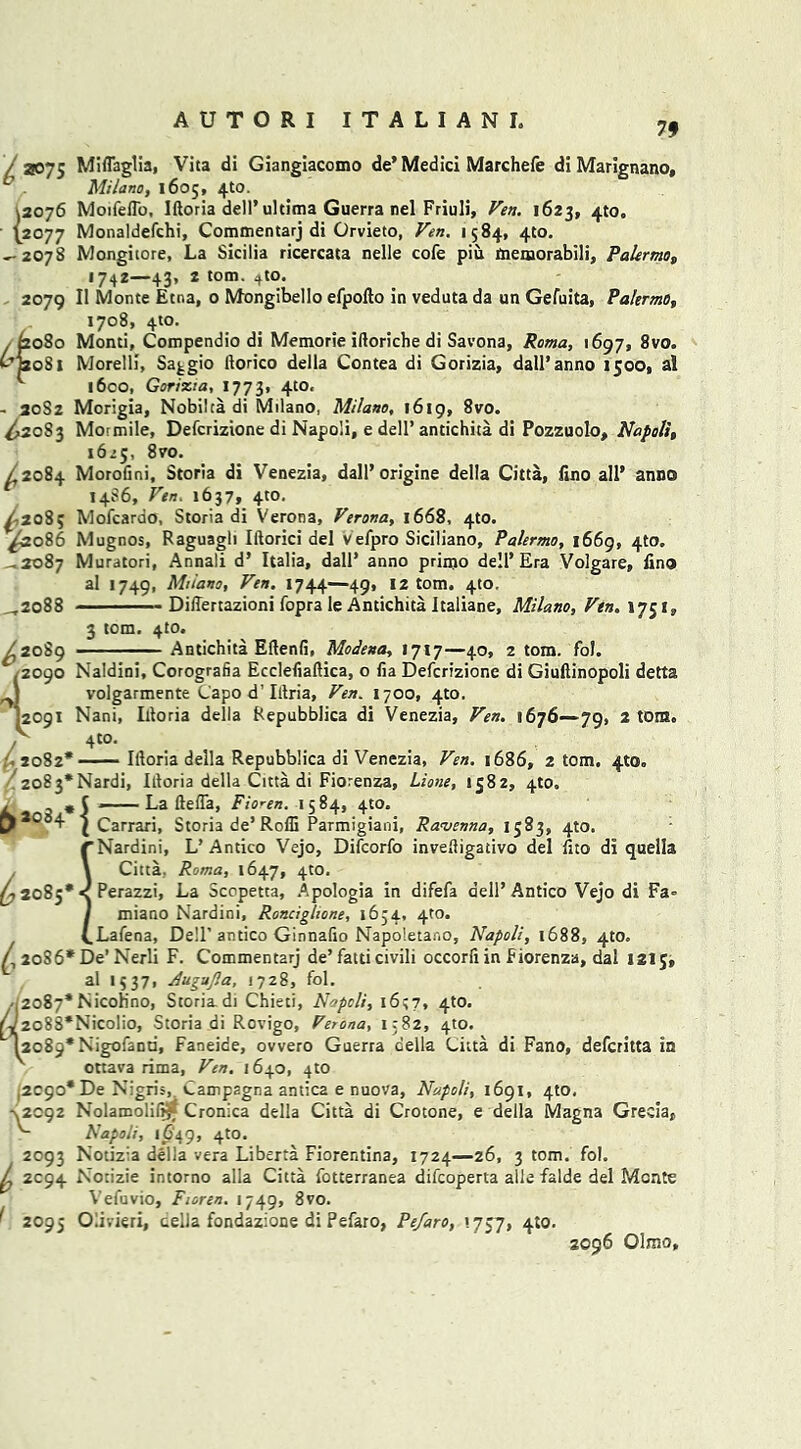 AUTORI ITALIANI.
79
2075 Miſſaglia, Vita di Giangiacomo de' Medici Marcheſe di Marignano,
Milano, 1605, 4to.
2076 Moiſeſſo, Iſtoria dell' ultima Guerra nel Friuli, Ven. 1623, 4to.
2077 Monaldeſchi, Commentarj di Orvieto, Ven. 1584, 4to.
2078 Mongitore, La Sicilia ricercata nelle coſe più memorabili, Palermo,
1742—43, 2 tom. 4to.
2079 Il Monte Etna, o Mongibello eſpoſto in veduta da un Geſuita, Palermo,
1708, 4to.
2080 Monti, Compendio di Memorie iſtoriche di Savona, Roma, 1697, 8vo.
2081 Morelli, Saggio ſtorico della Contea di Gorizia, dall' anno 1500, al
1600, Gorizia, 1773, 4to.
2082 Morigia, Nobiltà di Milano, Milano, 1619, 8vo.
2083 Mormile, Deſcrizione di Napoli, e dell' antichità di Pozzuolo, Napoli,
1625, 8vo.
2084 Moroſini, Storia di Venezia, dall' origine della Città, ſino all' anno
1486, Ven. 1637, 4to.
2085 Moſcardo, Storia di Verona, Verona, 1668, 4to.
2086 Mugnos, Raguagli Iſtorici del Veſpro Siciliano, Palermo, 1669, 4to.
2087 Muratori, Annali d' Italia, dall' anno primo dell' Era Volgare, ſino
al 1749, Milano, Ven. 1744—49, 12 tom. 4to.
2088 ——— Diſſertazioni ſopra le Antichità Italiane, Milano, Ven. 1751,
3 tom. 4to.
2089 ——— Antichità Eſtenſi, Modena, 1717—40, 2 tom. fol.
2090 Naldini, Corografia Eccleſiaſtica, o ſia Deſcrizione di Giuſtinopoli detta
volgarmente Capo d' Iſtria, Ven. 1700, 4to.
2091 Nani, Iſtoria della Repubblica di Venezia, Ven. 1676—79, 2 tom.
4to.
2082* —— Iſtoria della Repubblica di Venezia, Ven. 1686, 2 tom. 4to.
2083* Nardi, Iſtoria della Città di Fiorenza, Lione, 1582, 4to.
2084* { —— La ſteſſa, Fioren. 1584, 4to.
Carrari, Storia de' Roſſi Parmigiani, Ravenna, 1583, 4to.
Nardini, L' Antico Vejo, Diſcorſo inveſtigativo del ſito di quella
Città, Roma, 1647, 4to.
2085* { Perazzi, La Scopetta, Apologia in difeſa dell' Antico Vejo di Fa-
miano Nardini, Ronciglione, 1654, 4to.
Laſena, Dell' antico Ginnaſio Napoletano, Napoli, 1688, 4to.
2086* De' Nerli F. Commentarj de' fatti civili occorſi in Fiorenza, dal 1215,
al 1537, Auguſta, 1728, fol.
2087* Nicolino, Storia di Chieti, Napoli, 1657, 4to.
2088* Nicolio, Storia di Rovigo, Verona, 1582, 4to.
2089* Nigoſanti, Faneide, ovvero Guerra della Città di Fano, deſcritta in
ottava rima, Ven. 1640, 4to
2090* De Nigris, Campagna antica e nuova, Napoli, 1691, 4to.
2092 Nolamoliſi, Cronica della Città di Crotone, e della Magna Grecia,
Napoli, 1649, 4to.
2093 Notizia della vera Libertà Fiorentina, 1724—26, 3 tom. fol.
2094 Notizie intorno alla Città ſotterranea diſcoperta alle falde del Monte
Veſuvio, Fioren. 1749, 8vo.
2095 Olivieri, della fondazione di Peſaro, Peſaro, 1757, 4to.
2096 Olmo,